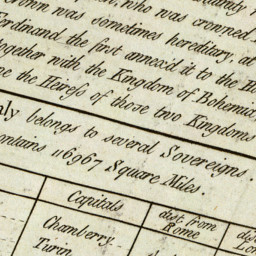 who was crowned
rown was sometimes hereditary, at
Ferdinand the first annex'd it to the
together with the Kingdom of Bohemia
the Heiress of those two Kingdoms
belongs to several Sovereigns.
ontains 116967 Square Miles.
Capitals
dist from
Rome
Chamberry
Turin